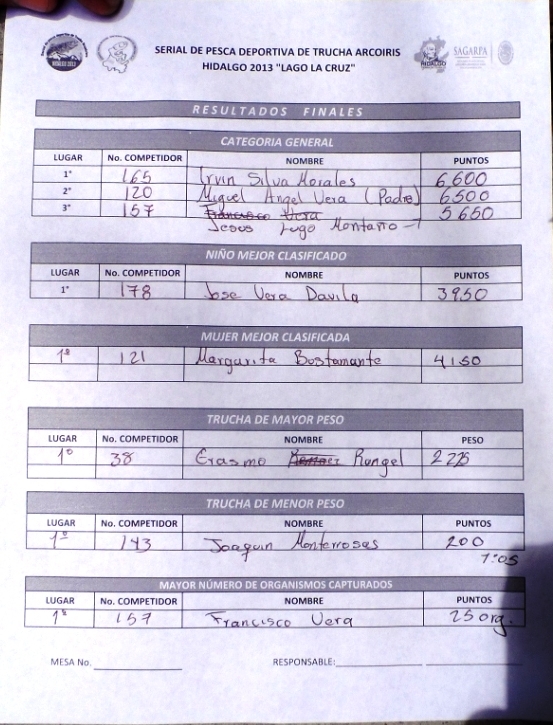 SERIAL DE PESCA DEPORTIVA DE TRUCHA ARCOIRIS
HIDALGO 2013 "LAGO LA CRUZ"
HIDALGO
SAGARPA
RESULTADOS FINALES
CATEGORIA GENERAL
LUGAR No. COMPETIDOR NOMBRE PUNTOS
1° 165 Irvin Silva Morales 6,600
2° 120 Miguel Angel Vera (Padre) 6500
3° 157 Francisco Vera 5650
Jesus Lugo Montaño
NIÑO MEJOR CLASIFICADO
LUGAR No. COMPETIDOR NOMBRE PUNTOS
1° 178 Jose Vera Davila 3950
MUJER MEJOR CLASIFICADA
1ª 121 Margarita Bustamante 4150
TRUCHA DE MAYOR PESO
LUGAR No. COMPETIDOR NOMBRE PESO
1° 38 Erasmo Rangel
TRUCHA DE MENOR PESO
LUGAR No. COMPETIDOR NOMBRE PUNTOS
1° 143 Joaquin Monterrosas 200
1:05
MAYOR NÚMERO DE ORGANISMOS CAPTURADOS
LUGAR No. COMPETIDOR NOMBRE PUNTOS
1ª 157 Francisco Vera 25 org.
MESA No. RESPONSABLE: